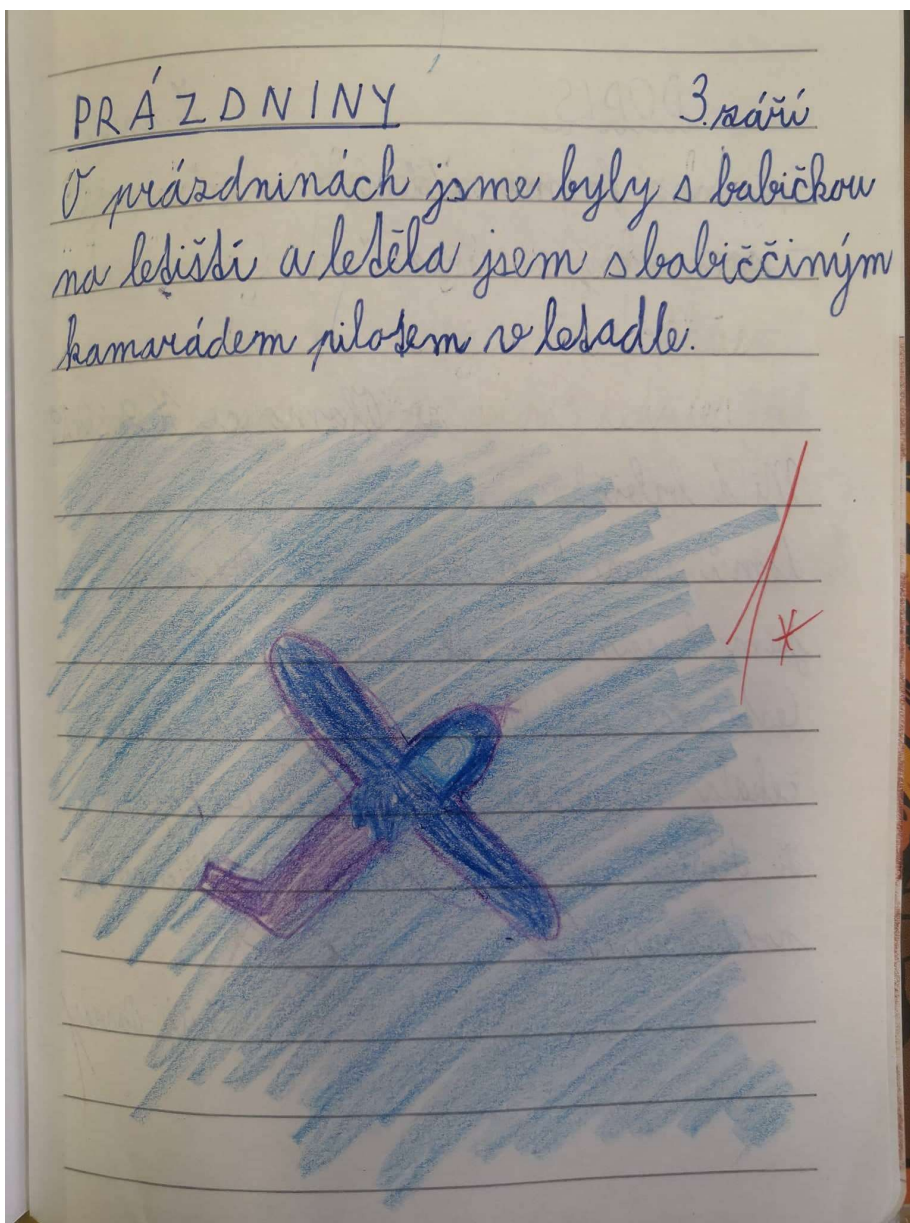 PRÁZDNINY 3. září
O prázdninách jsme byly s babičkou
na letišti a letěla jsem s babiččiným
kamarádem pilotem v letadle.
1*